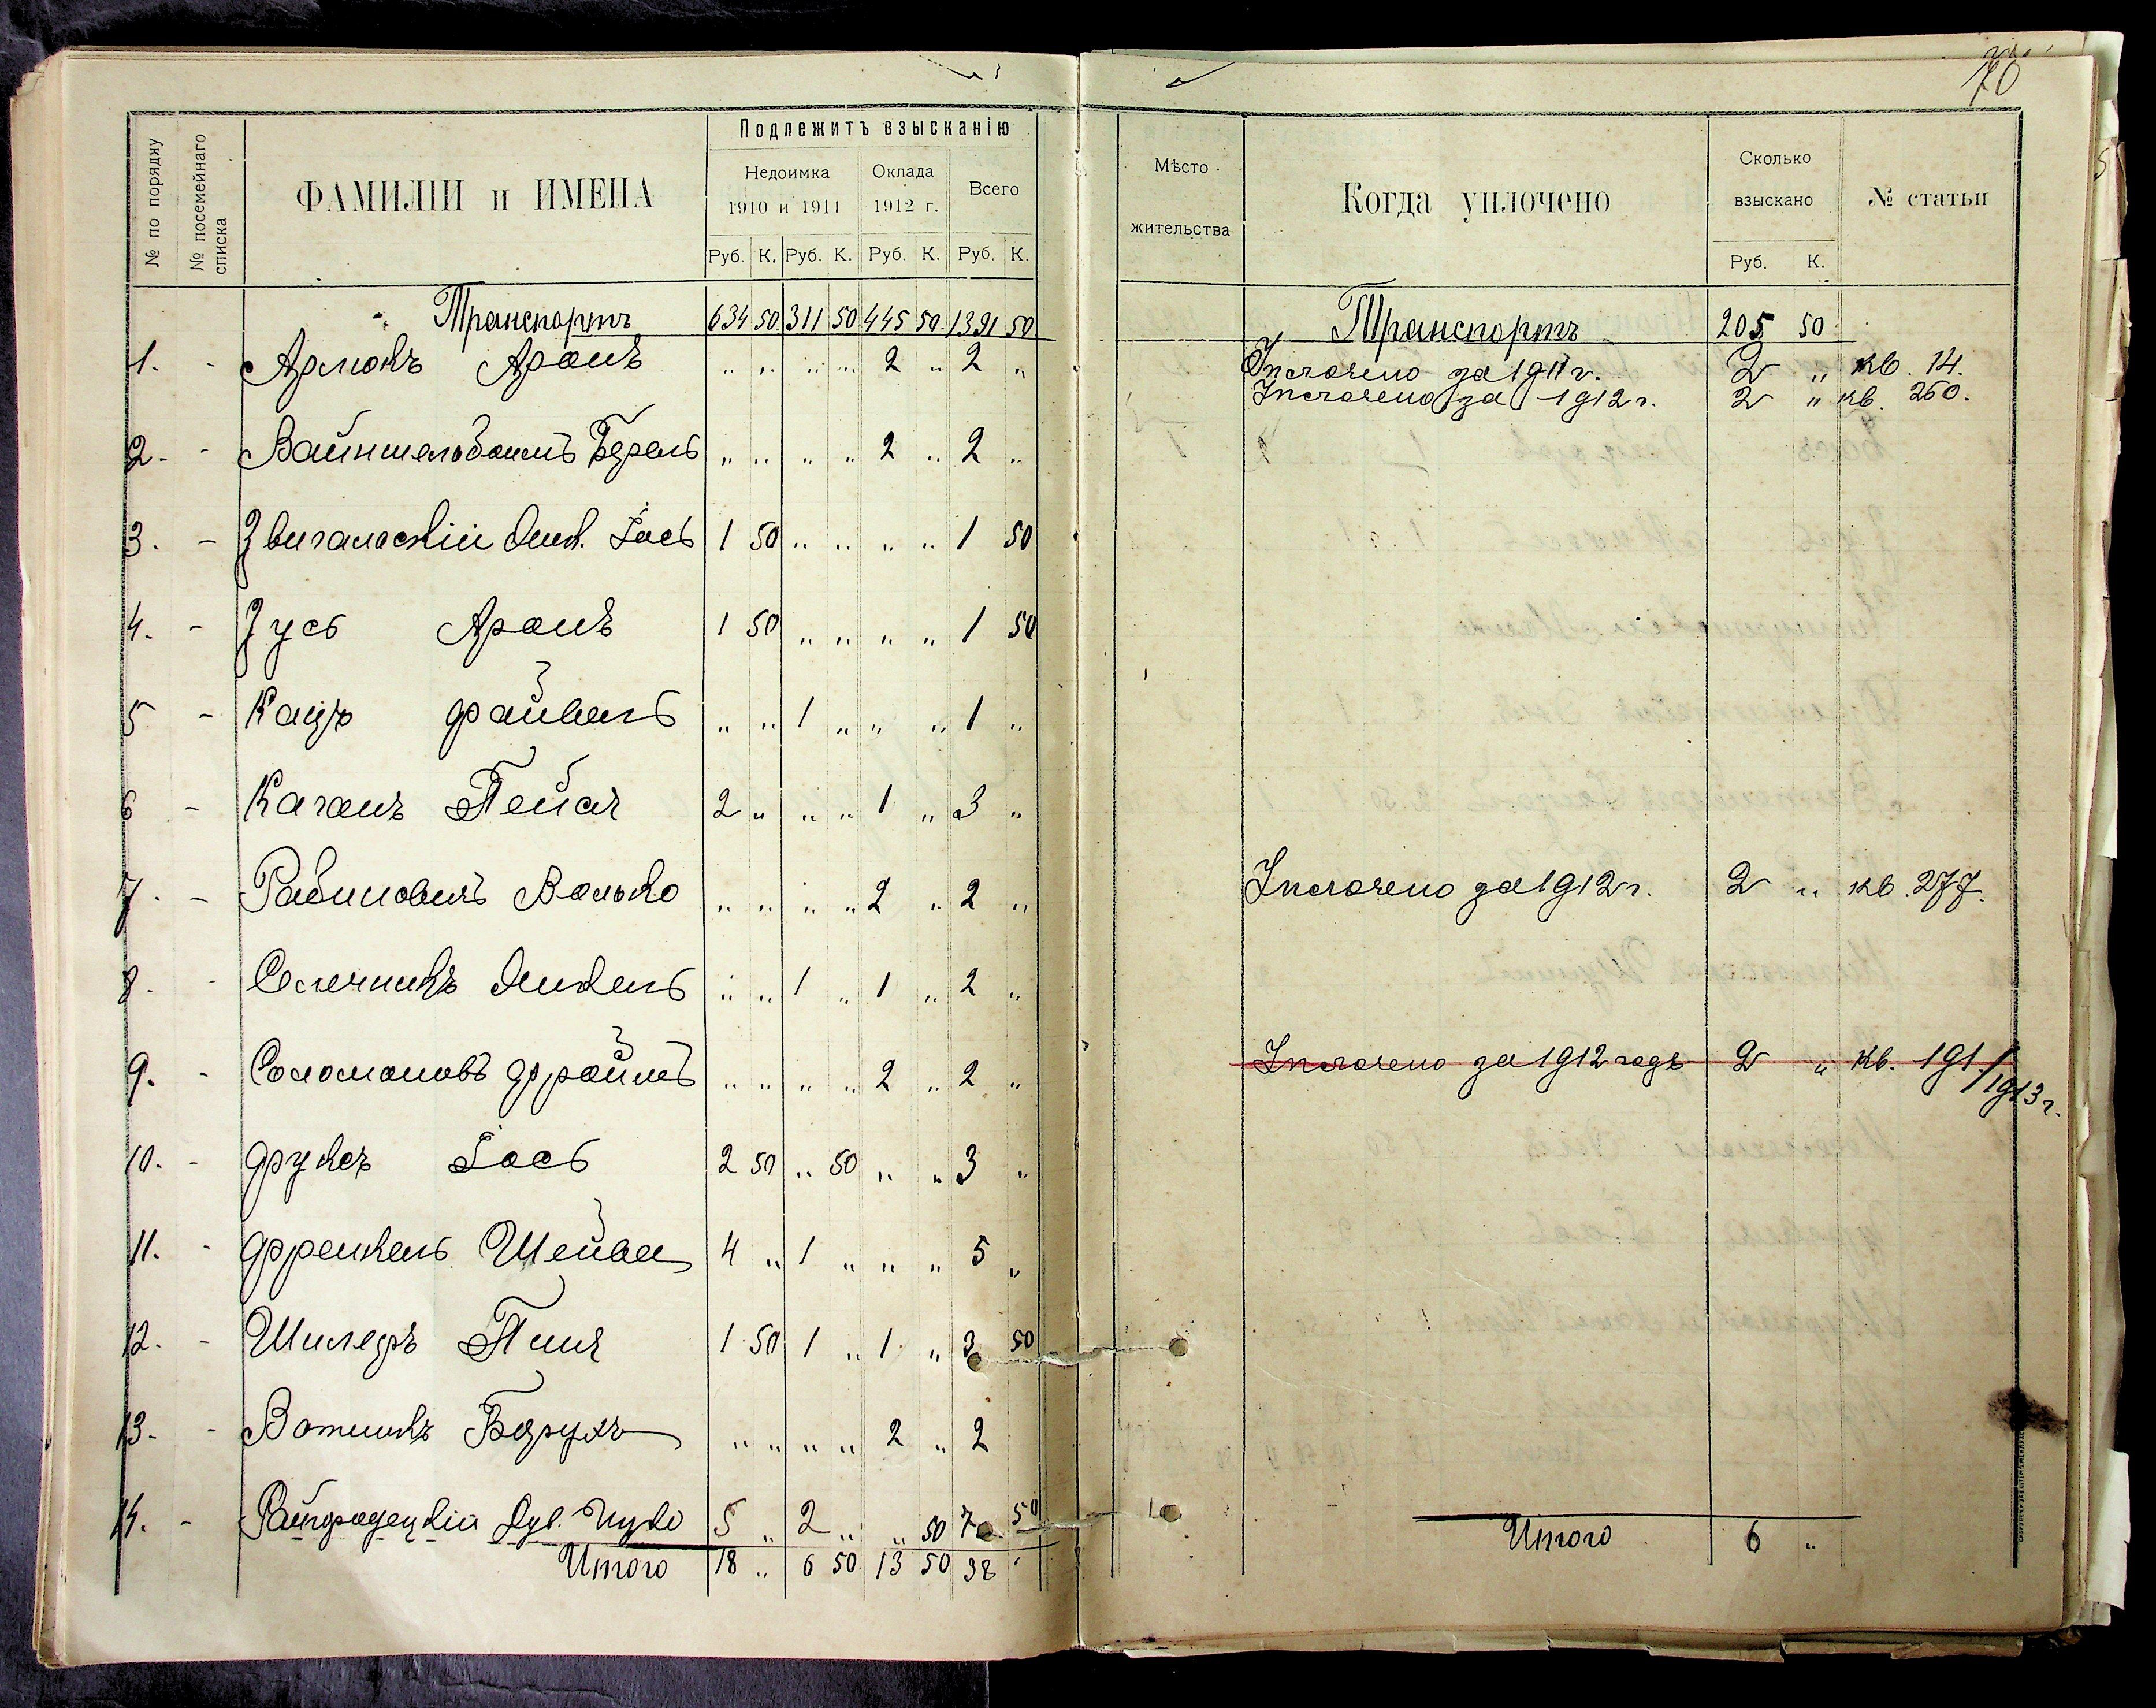 70
№ по порядку
№ посемейнаго списка
ФАМИЛІИ и ИМЕНА
Подлежитъ взысканію
Недоимка
1910 и 1911
Оклада
1912 г.
Всего
Руб. К. Руб. К. Руб. К. Руб. К.
Мѣсто
жительства
Когда уплочено
Сколько
взыскано
Руб. К.
№ статьи
Транспортъ 634 50 311 50 445 50 1391 50
Транспортъ 205 50
1. - Арлюкъ Аронъ „ „ „ „ 2 „ 2 „
Уплочено за 1911 г. 2 „ кв. 14.
Уплочено за 1912 г. 2 „ кв. 260.
2. - Вайншельбоимъ Берель „ „ „ „ 2 „ 2 „
3. - Звигальскіи Янк. Іось 1 50 „ „ „ „ 1 50
4. - Зусь Аронъ 1 50 „ „ „ „ 1 50
5 - Кацъ Файвель „ „ 1 „ „ „ 1 „
6 - Каганъ Пейсах 2 „ „ „ 1 „ 3 „
7. - Рабиновичъ Волько „ „ „ „ 2 „ 2 „
Уплочено за 1912 г. 2 „ кв. 277.
8. - Янкель „ „ 1 „ 1 „ 2 „
9. - Соломоновъ Фроимъ „ „ „ „ 2 „ 2 „
Уплочено за 1912 годъ 2 „ кв. 191/1913 г.
10. - Фруксъ Іось 2 50 „ 50 „ „ 3 „
11. - Френкель Шейва 4 „ 1 „ „ „ 5 „
12. - Шилеръ Пин 1 50 1 „ 1 „ 3 50
13. - Вотникъ Борухъ „ „ „ „ 2 „ 2
14. - Райгродецкіи 5 „ 2 „ „ 50 7 50
Итого 18 „ 6 50 13 50 38 „
Итого 6 „